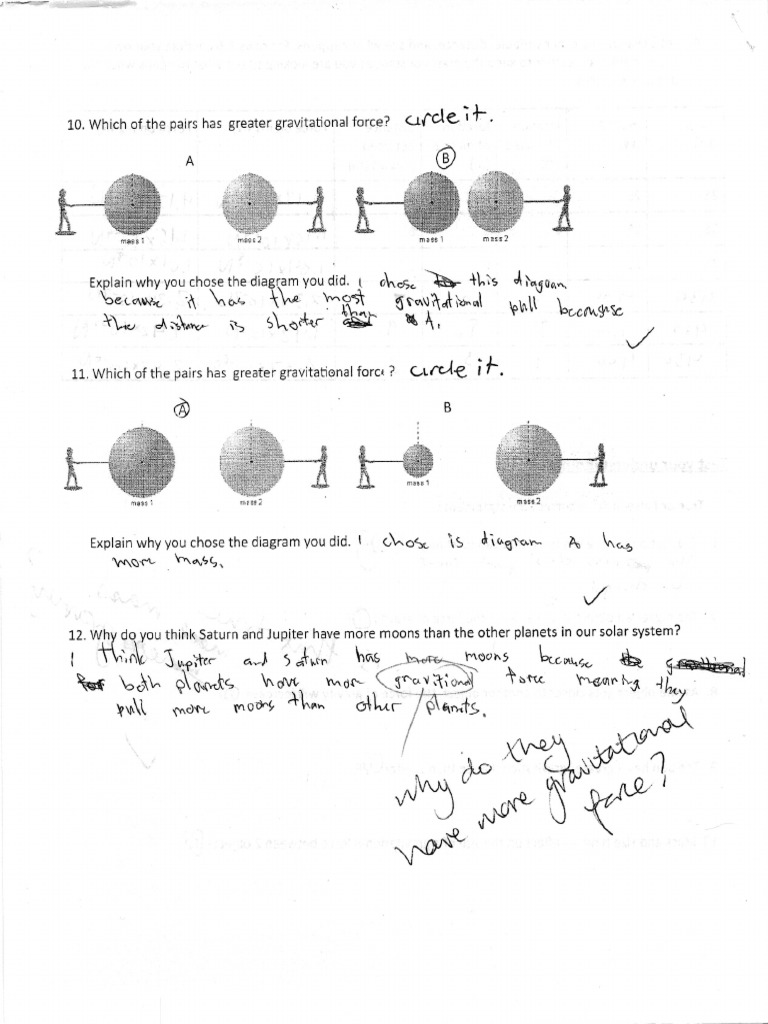 10. Which of the pairs has greater gravitational force? circle it.
A B
mass 1 mass 2 mass 1 mass 2
Explain why you chose the diagram you did. I chose this diagram
because it has the most gravitational pull becauguse
the distance is shorter than A.
11. Which of the pairs has greater gravitational force ? circle it.
A B
mass 1 mass 2 mass 1 mass 2
Explain why you chose the diagram you did. I chose is diagram A has
more mass.
12. Why do you think Saturn and Jupiter have more moons than the other planets in our solar system?
I think Jupiter and Saturn has more moons because
both planets have more gravitional force meaning they
pull more moons than other planets.
why do they
have more gravitational
force?